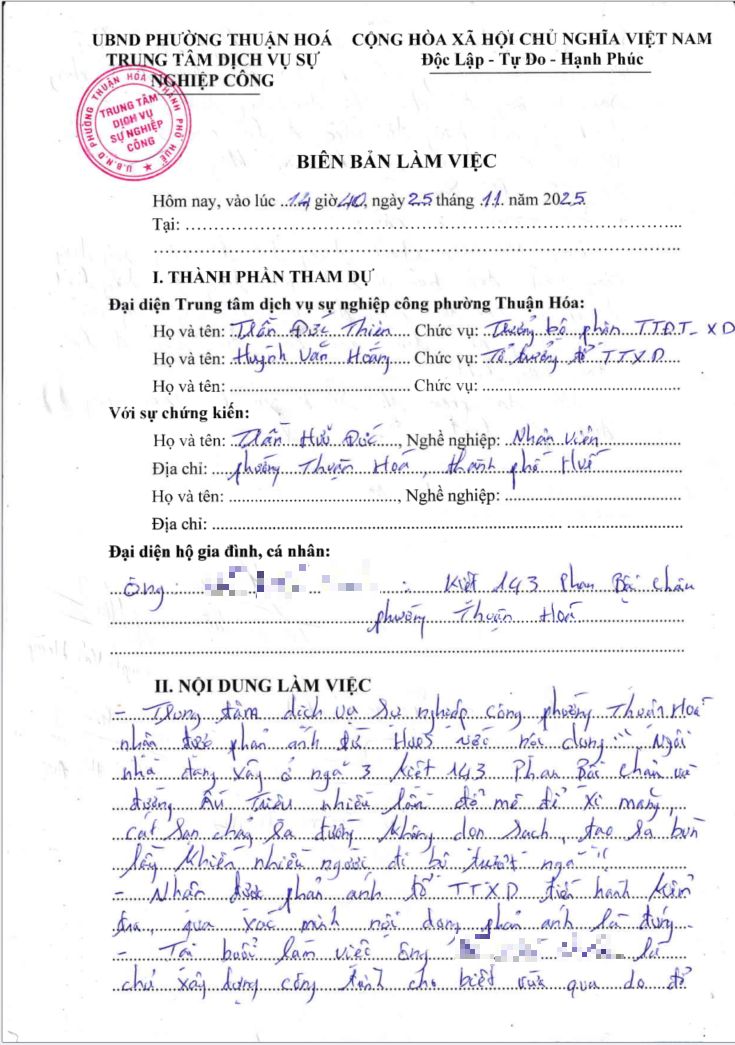 UBND PHƯỜNG THUẬN HOÁ CỘNG HÒA XÃ HỘI CHỦ NGHĨA VIỆT NAM
TRUNG TÂM DỊCH VỤ SỰ Độc Lập - Tự Do - Hạnh Phúc
NGHIỆP CÔNG
U.B.N.D PHƯỜNG THUẬN HÓA THÀNH PHỐ HUẾ
TRUNG TÂM
DỊCH VỤ
SỰ NGHIỆP
CÔNG
BIÊN BẢN LÀM VIỆC
Hôm nay, vào lúc 14 giờ 40, ngày 25 tháng 11 năm 2025
Tại:
I. THÀNH PHẦN THAM DỰ
Đại diện Trung tâm dịch vụ sự nghiệp công phường Thuận Hóa:
Họ và tên: Trần Đức Thiên Chức vụ: Trưởng bộ phận TTĐT-XD
Họ và tên: Huỳnh Văn Hoáng Chức vụ: Tổ trưởng tổ TTXD
Họ và tên: Chức vụ:
Với sự chứng kiến:
Họ và tên: Trần Hữu Đức, Nghề nghiệp: Nhân viên
Địa chỉ: phường Thuận Hoá, thành phố Huế
Họ và tên: , Nghề nghiệp:
Địa chỉ:
Đại diện hộ gia đình, cá nhân:
Ông: : Kiệt 143 Phan Bội Châu
phường Thuận Hoá
II. NỘI DUNG LÀM VIỆC
- Trung tâm dịch vụ sự nghiệp công phường Thuận Hoá
nhận được phản ánh từ HueS với nội dung "Ngôi
nhà đang xây ở ngã 3 Kiệt 143 Phan Bội Châu và
đường Ấu Triệu nhiều lần đổ mê để xi măng,
cát sạn chảy ra đường không dọn sạch, tạo ra bùn
lầy khiến nhiều người đi bộ trượt ngã"
- Nhận được phản ánh tổ TTXD tiến hành kiểm
tra, qua xác minh nội dung phản ánh là đúng.
- Tại buổi làm việc ông là
chủ xây dựng công trình cho biết vừa qua do đổ